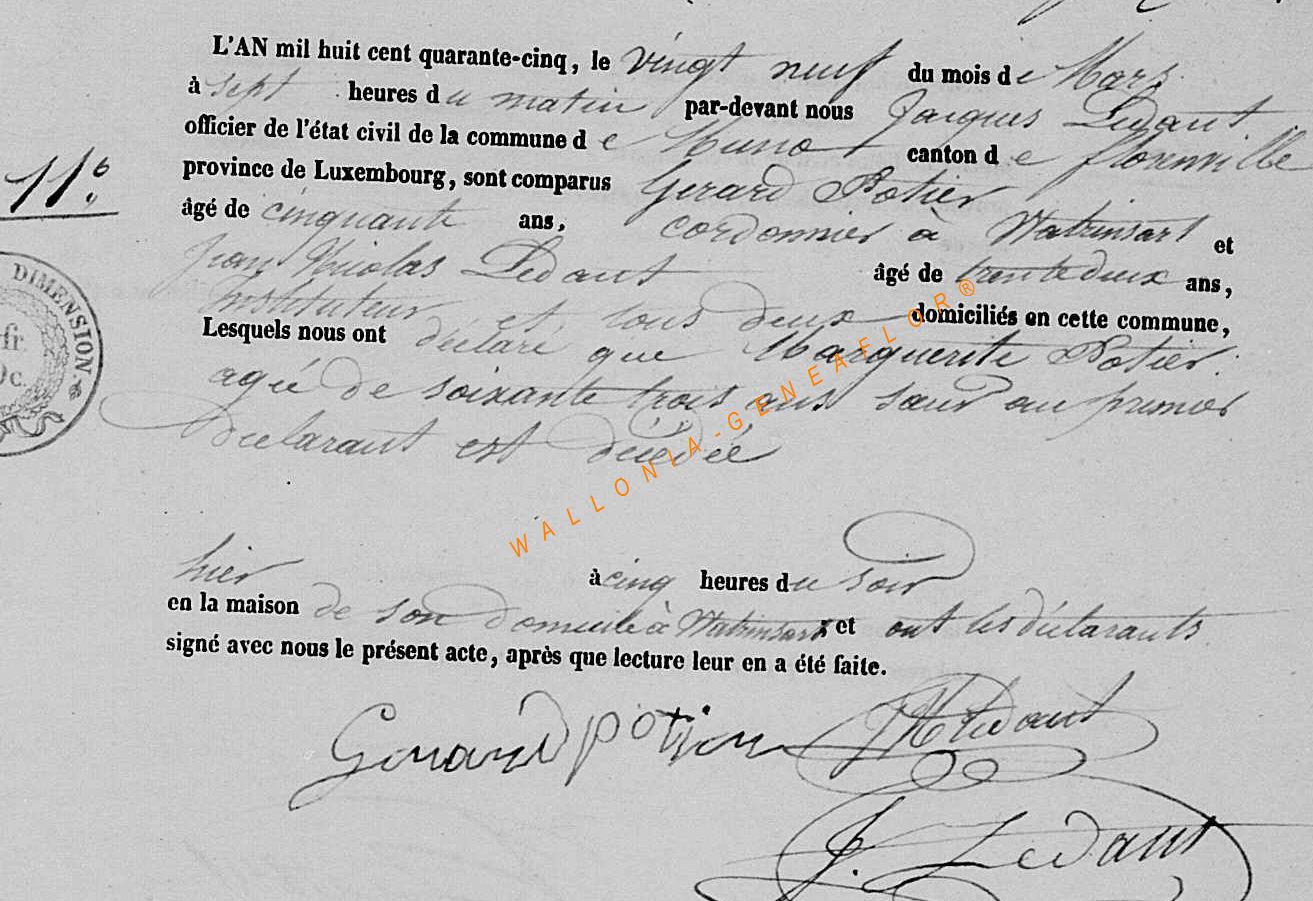 L'AN mil huit cent quarante-cinq, le vingt neuf du mois de Mars
à sept heures du matin par-devant nous Jacques Ledant
officier de l'état civil de la commune de Muno canton de florenville
11e
province de Luxembourg, sont comparus Gerard Potier
âgé de cinquante ans, cordonnier à Watrinsart et
Jean Nicolas Ledant âgé de trente deux ans,
instituteur et tous deux domiciliés en cette commune,
Lesquels nous ont déclaré que Marguerite Potier
agée de soixante trois ans sœur au premier
déclarant est décédée
hier à cinq heures du soir
en la maison de son domicile à Watrinsart et ont les déclarants
signé avec nous le présent acte, après que lecture leur en a été faite.
Gerard potier JN Ledant
J. Ledant
DIMENSION
fr.
c.
WALLONIA-GENEAFLOR®